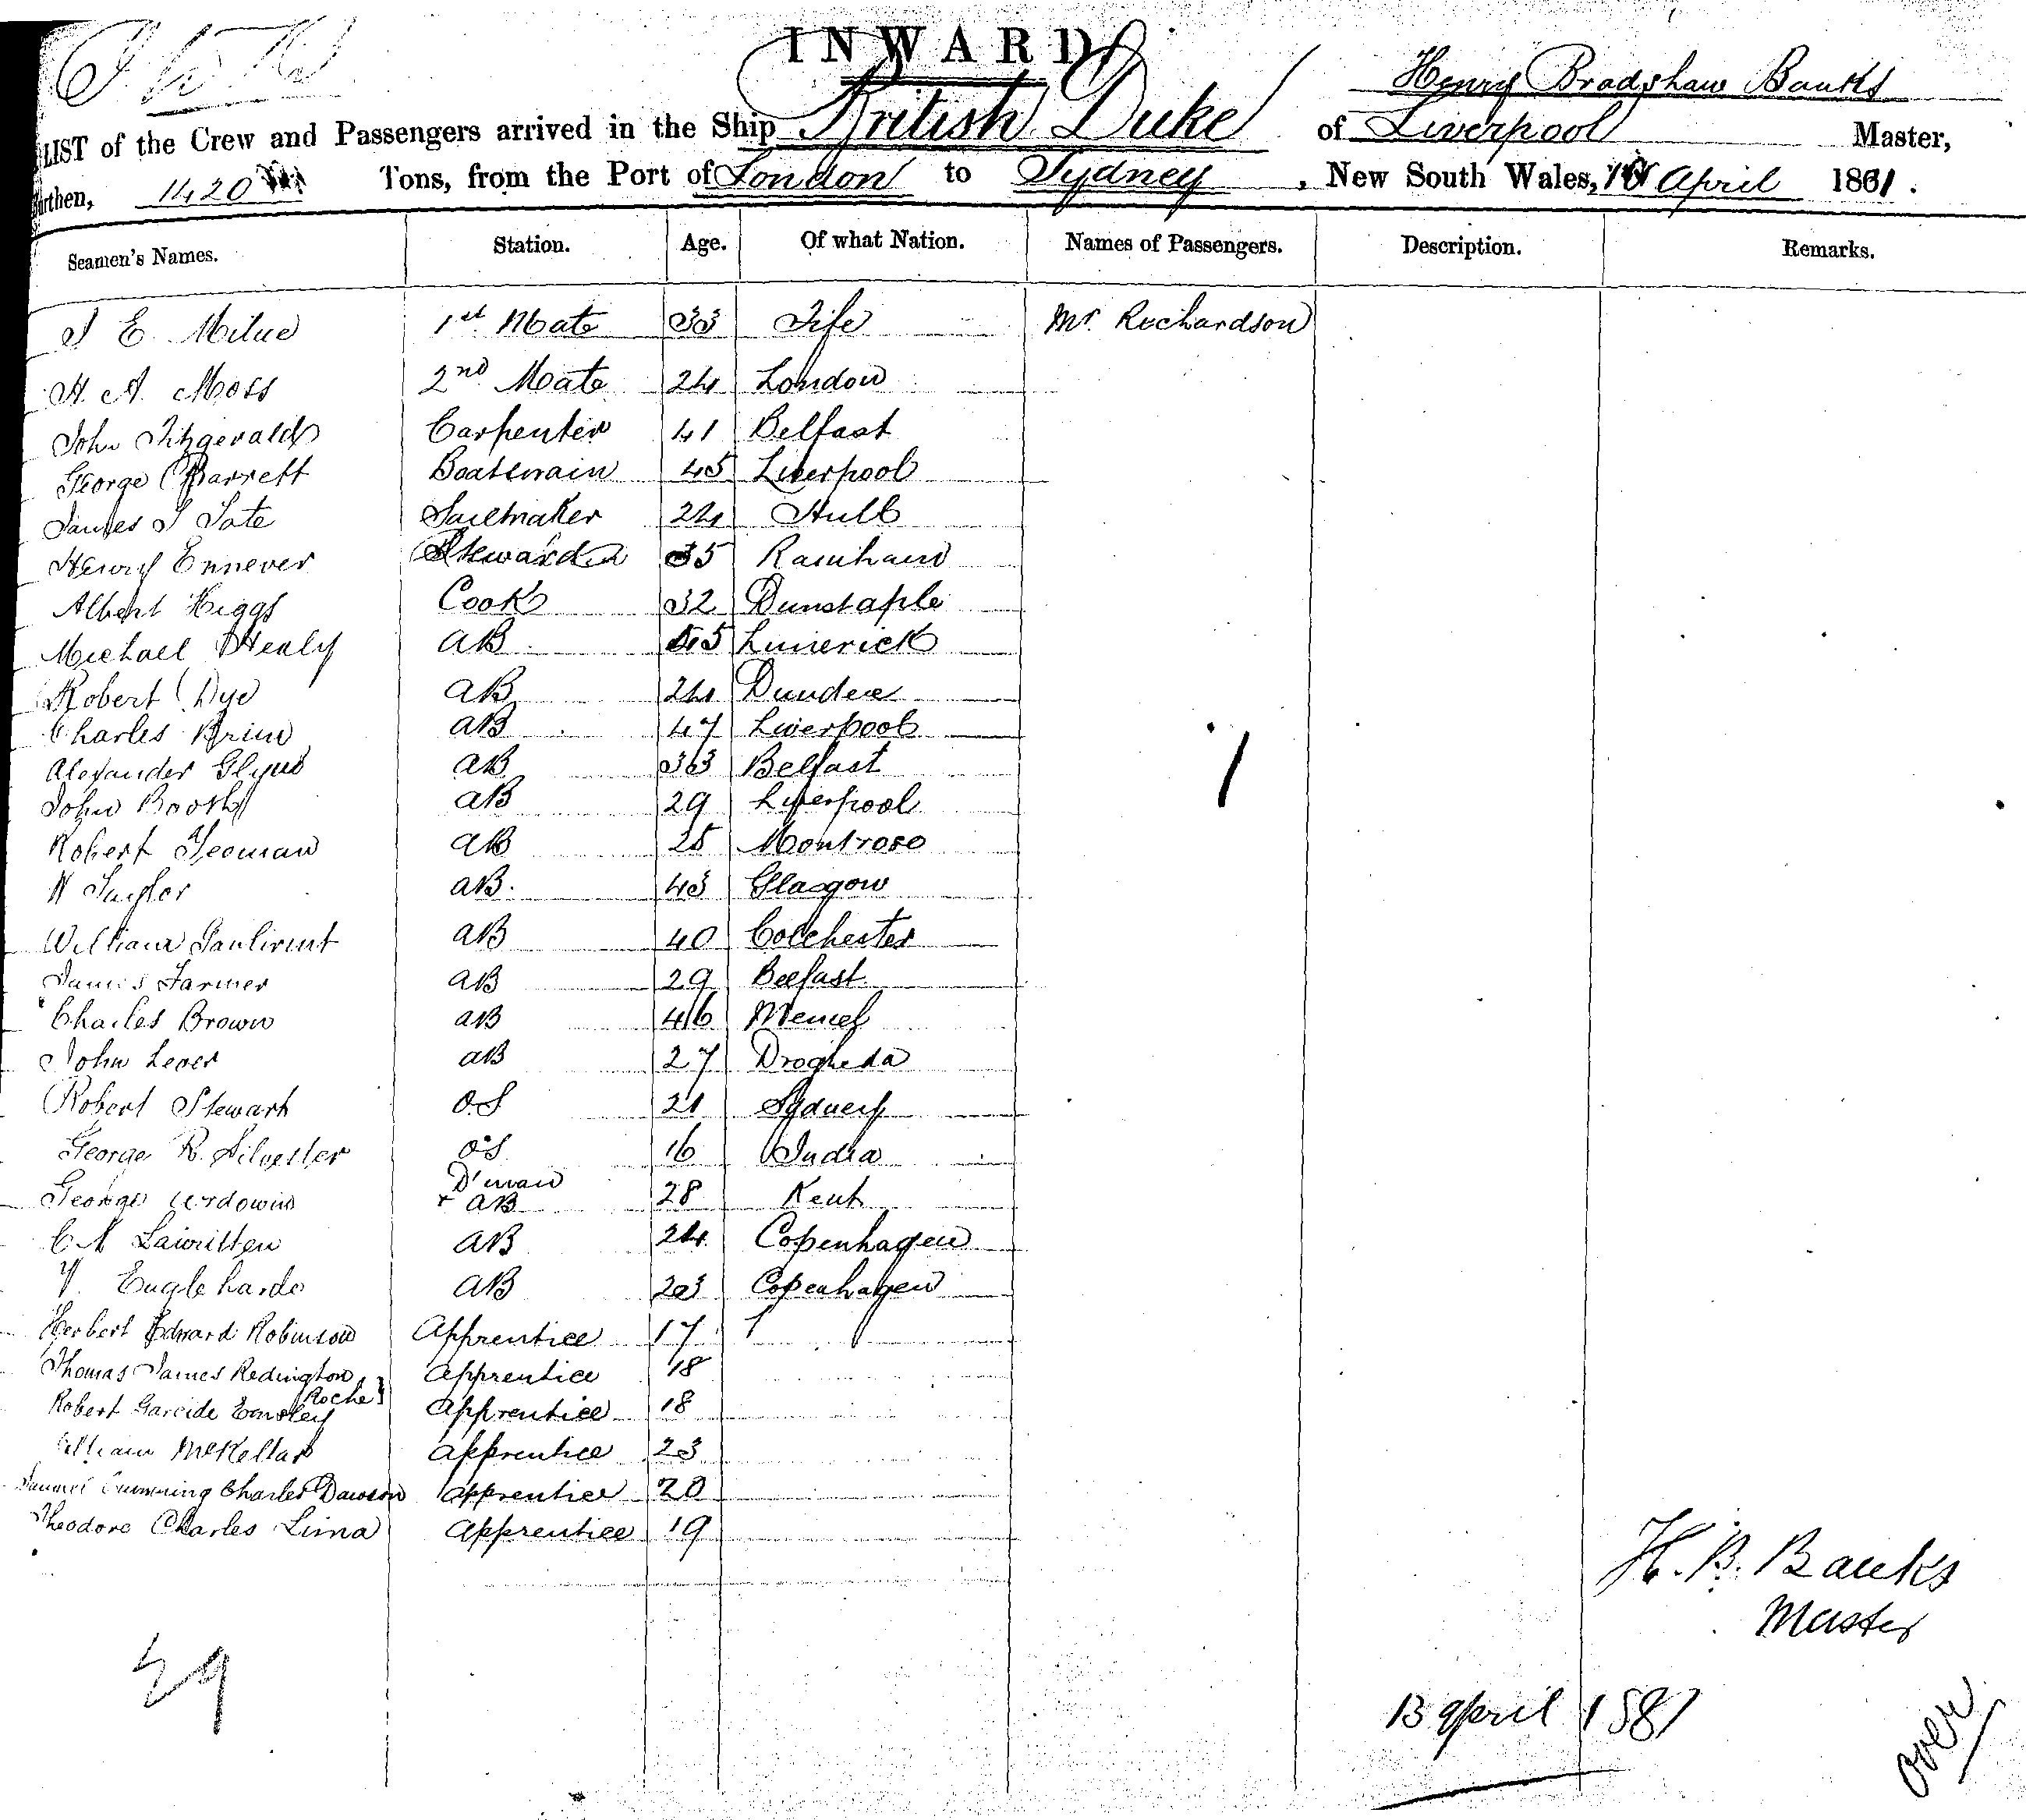 INWARD
Henry Bradshaw Banks
LIST of the Crew and Passengers arrived in the Ship British Duke of Liverpool Master,
1420 Tons, from the Port of London to Sydney, New South Wales, April 1881.
Seamen's Names. Station. Age. Of what Nation. Names of Passengers. Description. Remarks.
E. Milne 1st Mate 33 Fife Mr. Richardson
H. A. Moss 2nd Mate 24 London
John Fitzgerald Carpenter 41 Belfast
George Barrett Boatswain 45 Liverpool
James Tate Sailmaker 24 Hull
Henry Ennever Steward 35 Rainham
Albert Higgs Cook 32 Dunstaple
Michael Healy AB 45 Limerick
Robert Dye AB 24 Dundee
Charles AB 47 Liverpool
Alexander Glynn AB 33 Belfast
John Booth AB 29 Liverpool
Robert Yeoman AB 25 Montrose
AB. 43 Glasgow
William AB 40 Colchester
James Farmer AB 29 Belfast
Charles Brown AB 46 Memel
John Lever AB 27 Drogheda
Robert Stewart O.S 21 Sydney
George R. Silvester O.S 16 India
D'man
George + AB 28 Kent
AB 24 Copenhagen
AB 23 Copenhagen
Herbert Edward Robinson Apprentice 17
Thomas James Redington Apprentice 18
Roche}
Robert Garside Emsley Apprentice 18
William McKellar Apprentice 23
Cumming Charles Dawson Apprentice 20
Theodore Charles Lima Apprentice 19
H. B. Banks
Master
29
13 April 1881
over